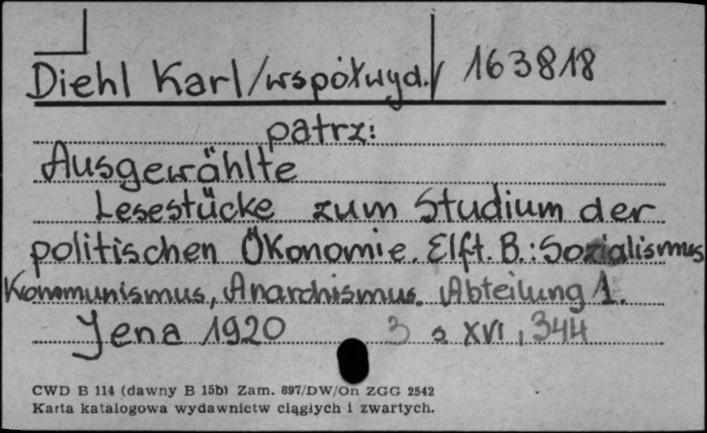 Diehl Karl /współwyd./ 163818
patrz:
Ausgewählte
Lesestücke zum Studium der
politischen Ökonomie. Elft. B.: Sozialismus
Kommunismus, Anarchismus. Abteilung 1.
Jena 1920 3 s XVI, 344
CWD B 114 (dawny B 15b) Zam. 897/DW/On ZGG 2542
Karta katalogowa wydawnictw ciągłych i zwartych.